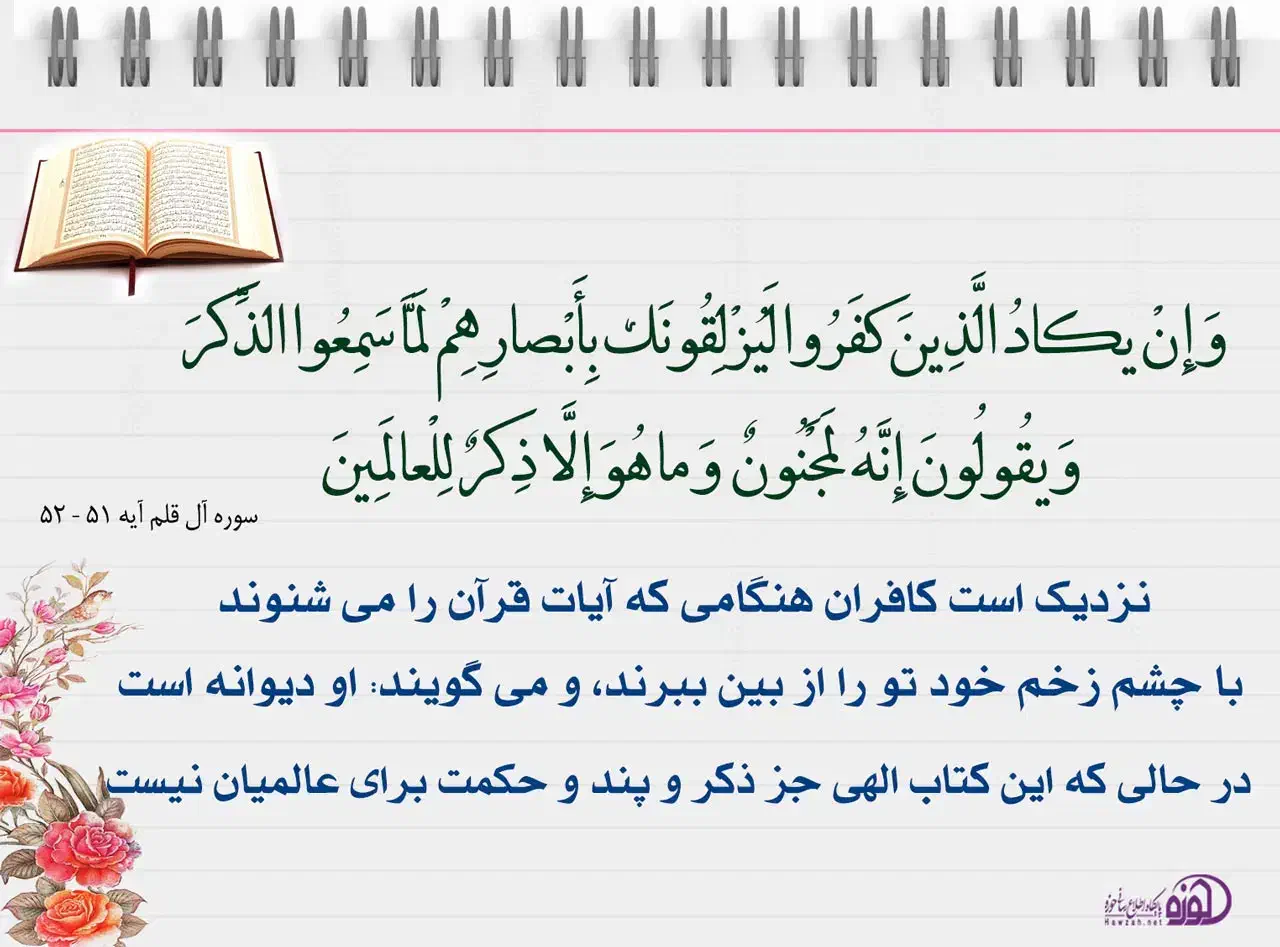 وَإِنْ يَكادُ الَّذِينَ كَفَرُوا لَيُزْلِقُونَكَ بِأَبْصارِهِمْ لَمَّا سَمِعُوا الذِّكْرَ
وَيَقُولُونَ إِنَّهُ لَمَجْنُونٌ وَماهُوَ إِلَّا ذِكرٌ لِلْعالَمِينَ
سوره آل قلم آیه ۵۱ - ۵۲
نزدیک است کافران هنگامی که آیات قرآن را می شنوند
با چشم زخم خود تو را از بین ببرند، و می گویند: او دیوانه است
در حالی که این کتاب الهی جز ذکر و پند و حکمت برای عالمیان نیست
حوزه
پایگاه اطلاع رسانی حوزه
Hawzah.net